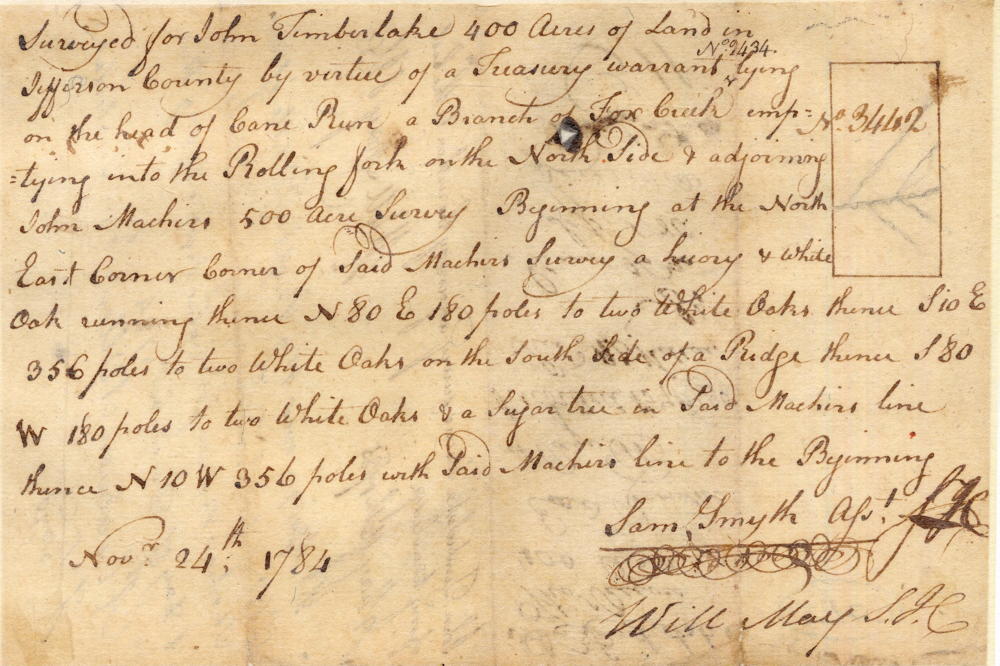 Surveyed for John Timberlake 400 Acres of Land in
No. 2434.
Jefferson County by virtue of a Treasury warrant lying
on the head of Cane Run a Branch of Fox Creek emp=
No. 3442
=tying into the Rolling fork on the North Side & adjoining
John Machirs 500 Acre Survey Beginning at the North
East Corner Corner of Said Machirs Survey a hicory & White
Oak running thence N 80 E 180 poles to two White Oaks thence S 10 E
356 poles to two White Oaks on the South Side of a Ridge thence S 80
W 180 poles to two White Oaks & a Sugar tree in Said Machirs line
thence N 10 W 356 poles with Said Machirs line to the Beginning
Sam. Smyth Asst.
Novr. 24th. 1784
Will May S.J.C